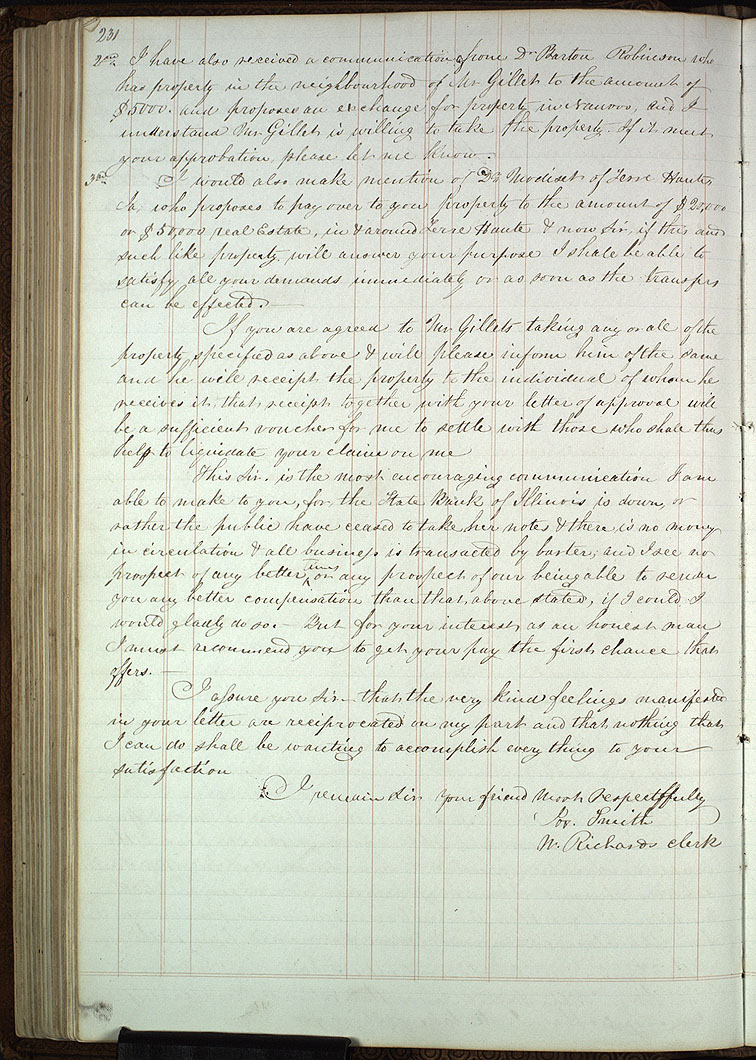 231
2nd. I have also received a communication from Dr. Barton Robinson who
has property in the neighbourhood of Mr Gillets to the amount of
$5000. and proposes an exchange for property in Nauvoo, and I
understand Mr. Gillet is willing to take the property. If it meet
your approbation please let me know.
3rd. I would also make mention of Dr. Modiset of Terre Haute,
Ia, who proposes to pay over to you property to the amount of $20,000
or $50,000 real Estate, in & around Terre Haute & now Sir, if this and
such like property will answer your purpose I shall be able to
satisfy all your demands immediately or as soon as the transfers
can be effected.—
If you are agreed to Mr Gillets taking any or all of the
property specified as above & will please inform him of the same
and he will receipt the property to the individual of whom he
receives it, that receipt together with your letter of approval will
be a sufficient voucher for me to settle with those who shall thus
help to liquidate your claim on me
This Sir. is the most encouraging communication I am
able to make to you, for, the State Bank of Illinois is down, or
rather the public have ceased to take her notes & there is no money
in circulation & all business is transacted by barter; and I see no
prospect of any better times, or any prospect of our being able to render
you any better compensation than that above stated, if I could I
would gladly do so.— But for your interest, as an honest man
I must recommend you to get your pay the first chance that
offers.—
I assure you Sir— that the very kind feelings manifested
in your letter are reciprocated on my part and that nothing that
I can do shall be wanting to accomplish every thing to your
satisfaction
I remain Sir your friend Most Respectffully
Jos. Smith
W. Richards clerk